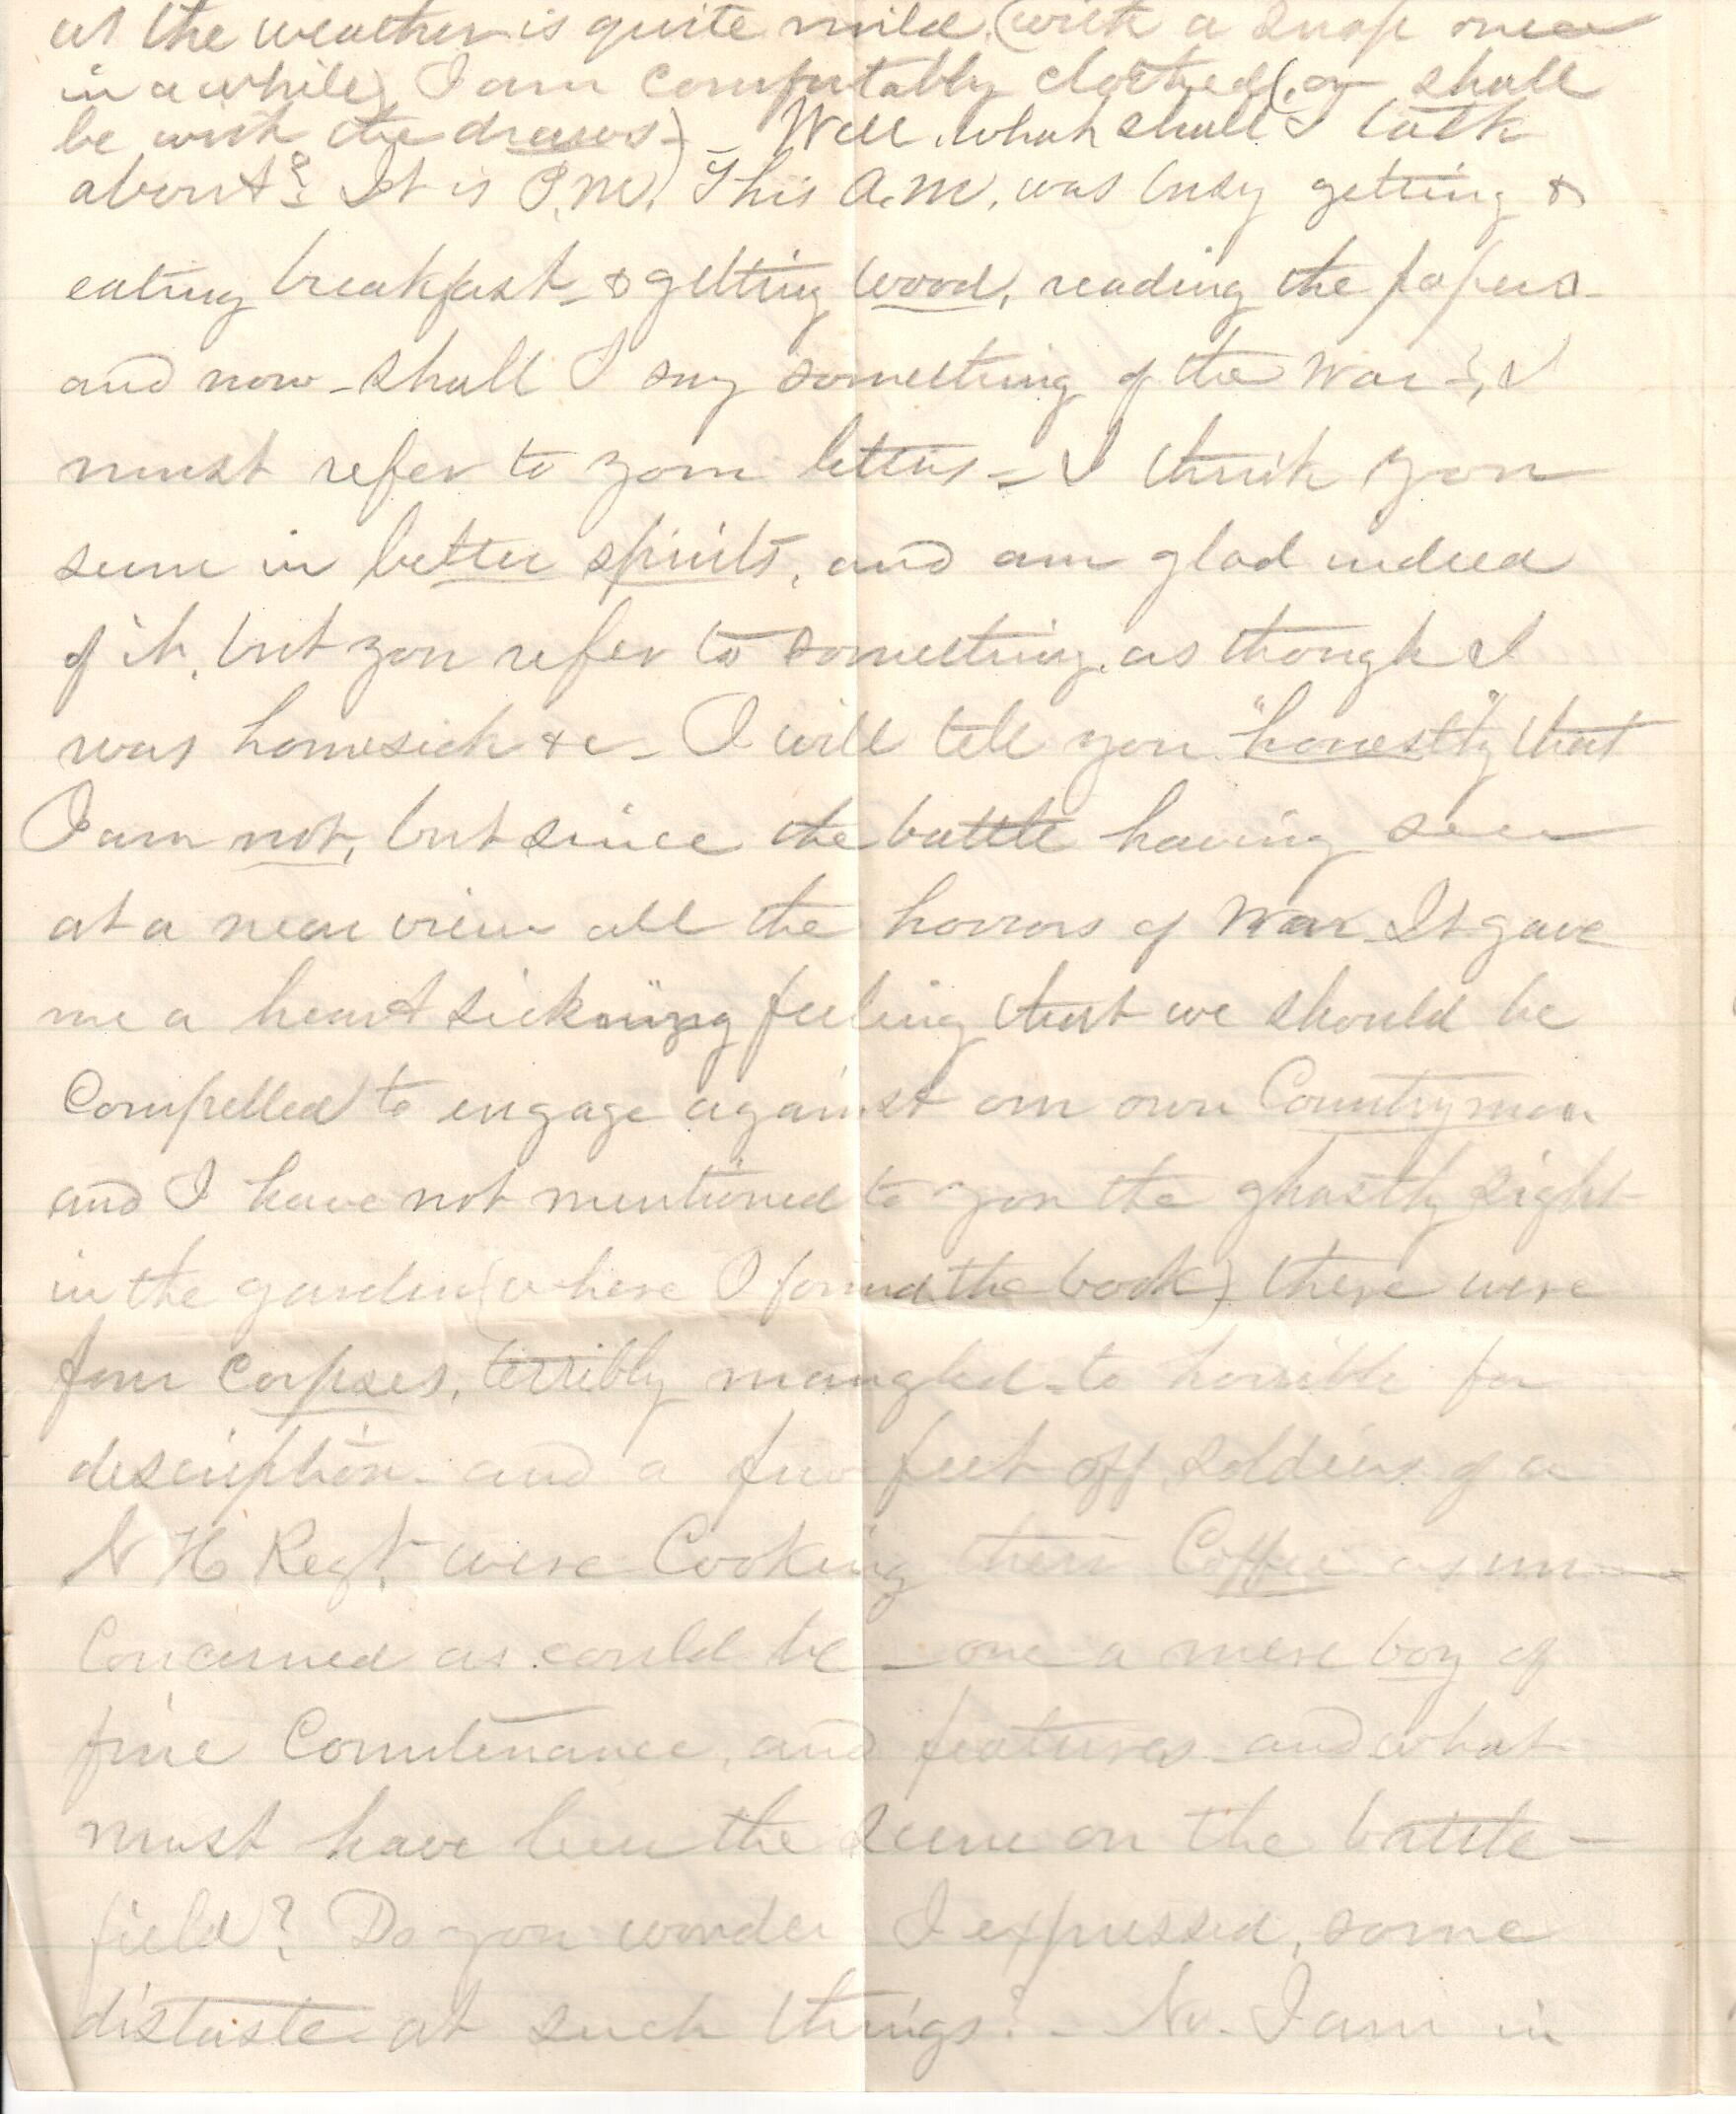 as the weather is quite mild, (with a snap once
in a while) I am comfortably clothed (or shall
be with the drawers) – Well, what shall I talk
about? It is P.M. This A.M. was busy getting &
eating breakfast – & getting wood, reading the papers –
and now – shall I say something of the War –, I
must refer to your letters – I think you
seem in better spirits, and am glad indeed
of it, but you refer to something, as though I
was homesick &c – I will tell you "honestly" that
I am not, but since the battle having seen
at a near view all the horrors of War – It gave
me a heart sickning feeling that we should be
Compelled to engage against our own Countrymen
and I have not mentioned to you the ghastly sight
in the garden (where I found the book) there were
four Corpses, terribly mangled – to horrible for
description – and a few feet off, soldiers of a
N H Regt. were Cooking their Coffee as un –
Concerned as could be – one a mere boy of
fine Countenance, and features – and what
must have been the scene on the battle –
field? Do you wonder I expressed, some
distaste at such things? – No – I am in